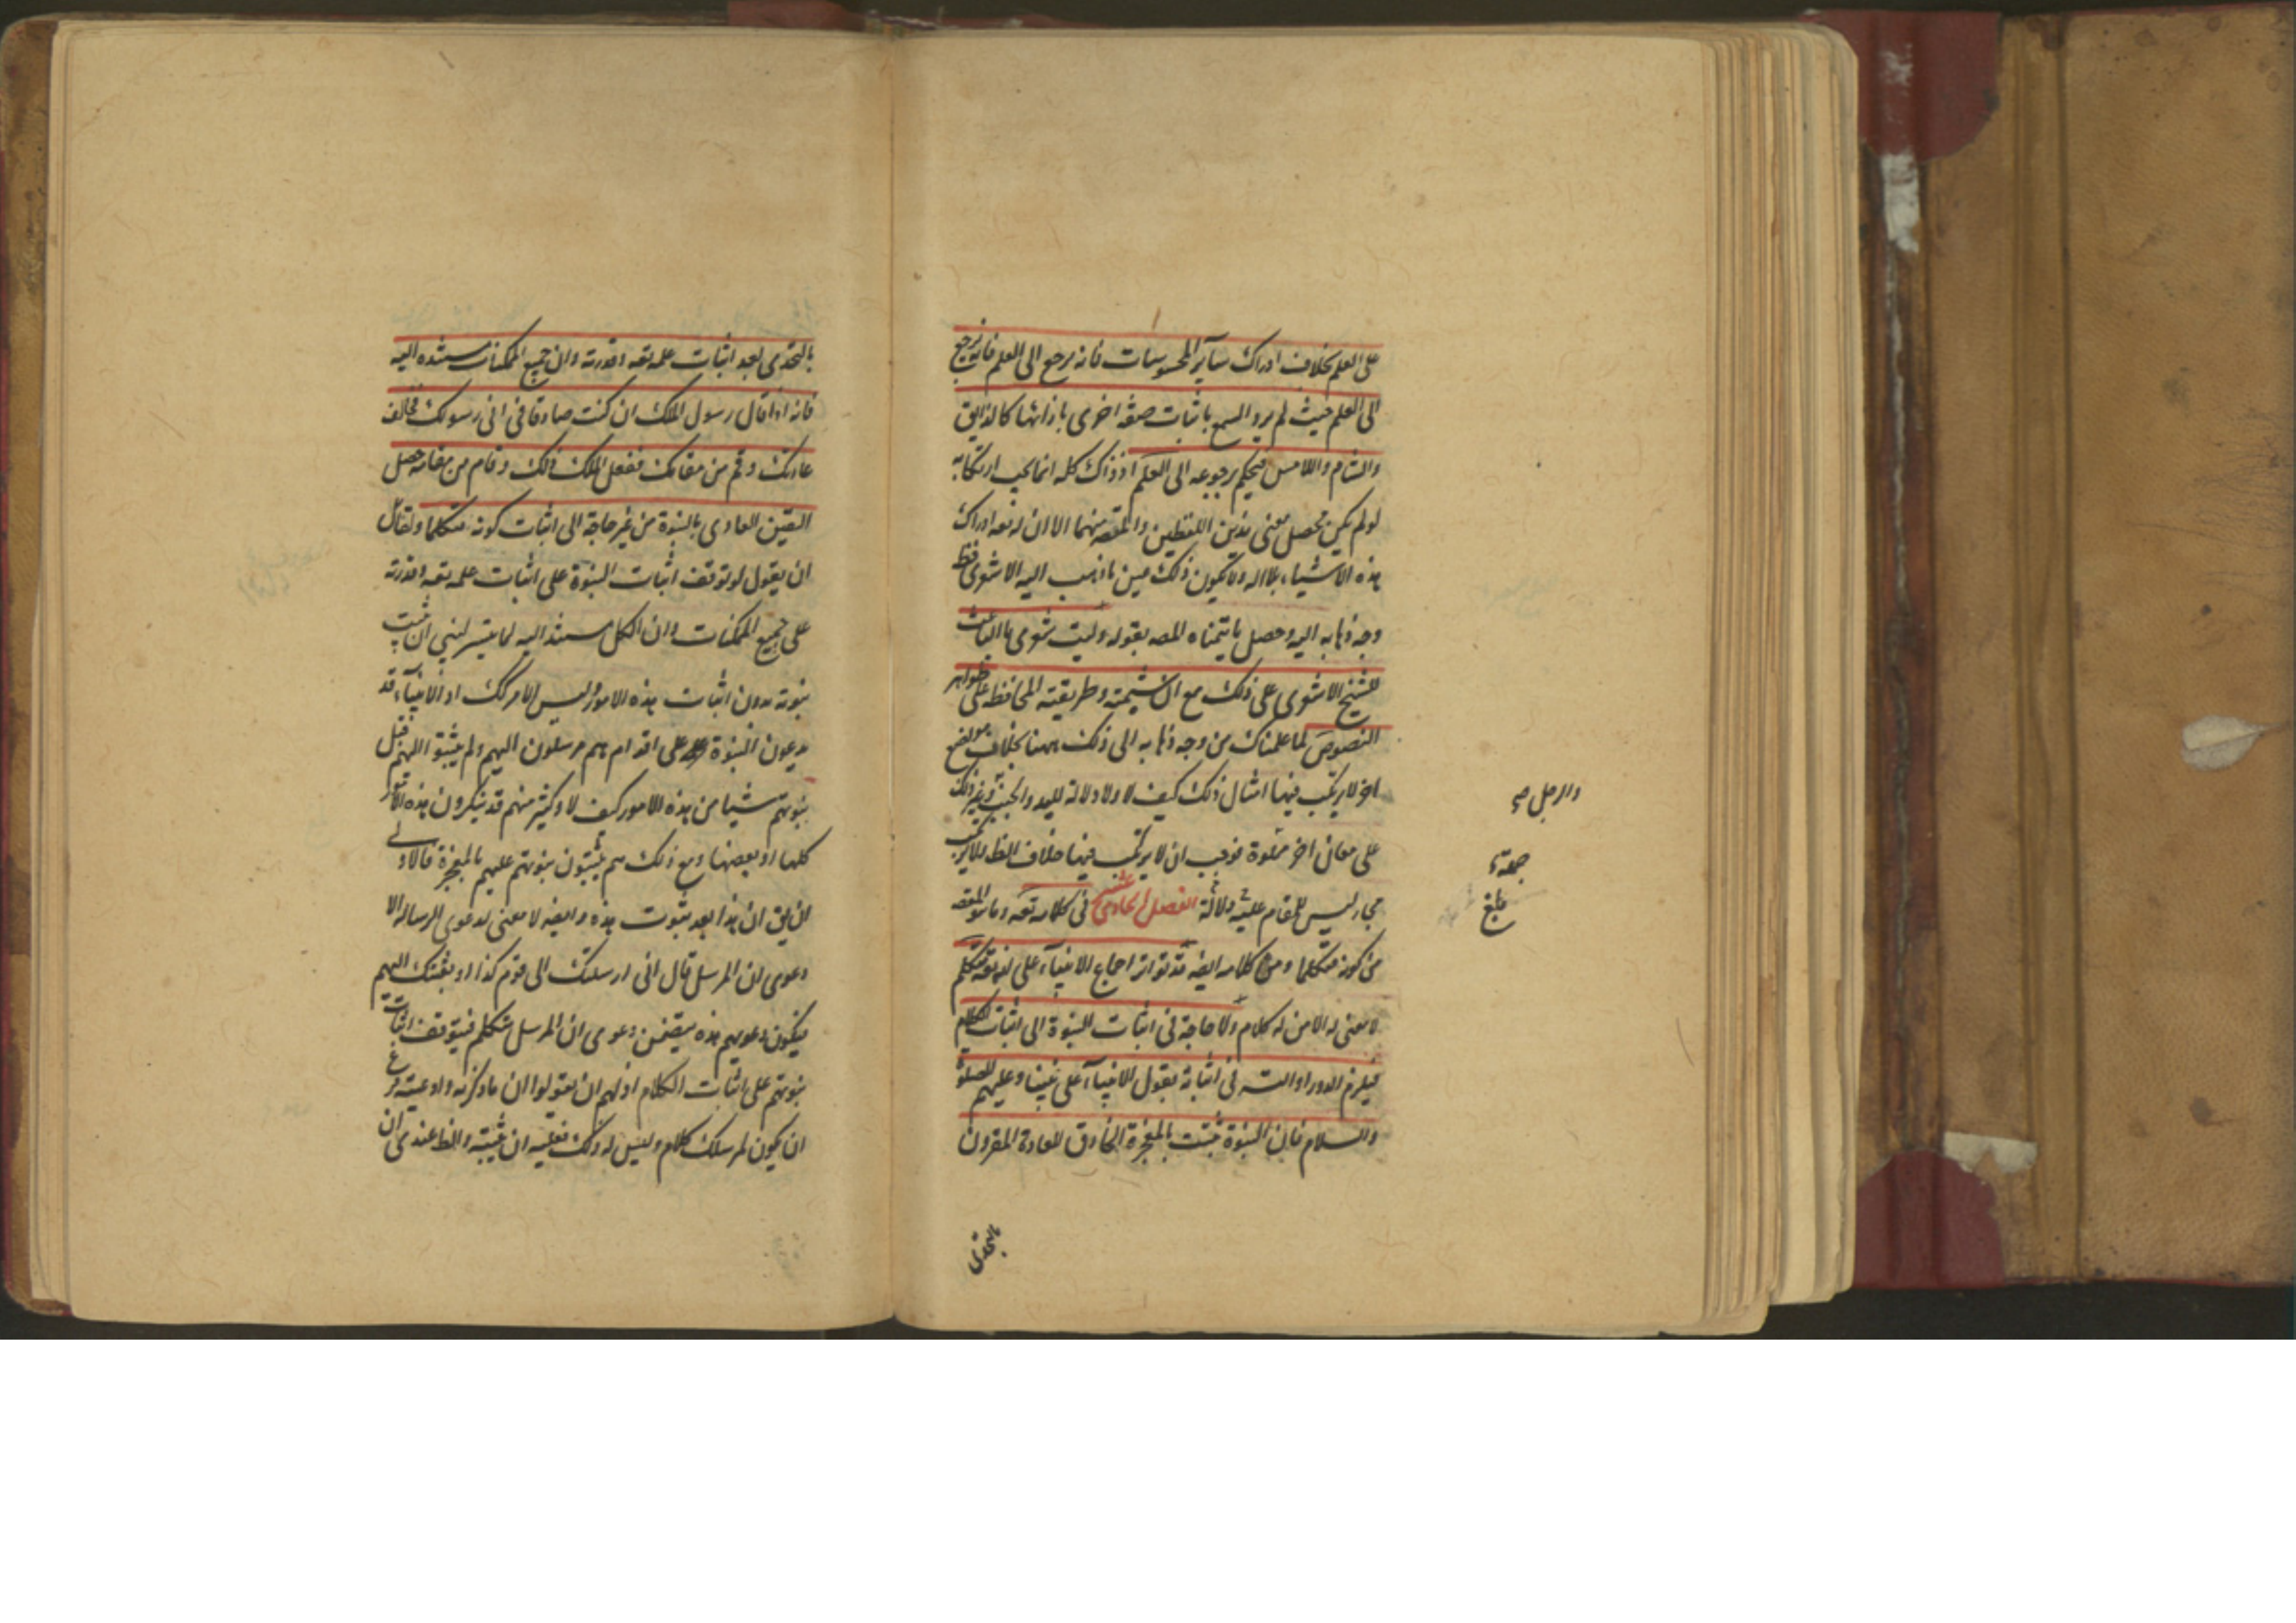 على العلم بخلاف ادراك سائر المحسوسات فانه يرجع الى العلم فانه يرجع
الى العلم حيث لم يرد السمع باثبات صفة اخرى بازائها كالذايق
والشام واللامس فيحكم برجوعه الى العلم اذ ذاك كله انما يجب ارتكابه
لو لم يكن محصل معنى هذين اللفظين والمقصـ منهما الا ان له تعه ادراك
هذه الاشياء بلا اله ولا يكون ذلك عين ما ذهب اليه الاشعرى فظـ
وجه ذهابه اليه وحصل ما يتمناه المصـ بقوله وليت شعرى ما الباعث
للشيخ الاشعرى على ذلك مع ان شيمته وطريقته المحافظة على ظواهر
النصوص لما علمناك من وجه ذهابه الى ذلك ههنا بخلاف مواضع
اخر لا يرتكب فيها امثال ذلك كيف لا ولا دلالة لليد والجنب وغير ذلك
على معان اخر فوجب ان لا يرتكب فيها خلاف الظ لئلا يرتكب
مجاز ليس للمقام عليه دلالة الفصل الحادى عشر فى كلامه تعه وما هو المقصـ
من كونه متكلما ومن كلامه ايضه قد تواتر اجماع الانبياء على انه تعه متكلم
لا معنى له الا من له كلام ولا حاجة فى اثبات النبوة الى اثبات الكلام
فيلزم الدور او التسـ فى اثباته بقول الانبياء على نبينا وعليهم الصلوة
والسلام فان النبوة ثبتت بالمعجزة الخارق للعادة المقرون
بالتحدى
والرجل صح
بلغ
بالتحدى بعد اثبات علمه تعه وقدرته وان جميع الممكنات مستنده اليه
فانه اذا قال رسول الملك ان كنت صادقا فى انى رسولك فخالف
عادتك وقم من مقامك ففعل الملك ذلك وقام من مقامه حصل
اليقين العادى بالنبوة من غير حاجة الى اثبات كونه متكلما ولقائل
ان يقول لو توقف اثبات النبوة على اثبات علمه تعه وقدرته
على جميع الممكنات وان الكل مستند اليه لما تيسر لنبى ان يثبت
نبوته بدون اثبات هذه الامور وليس الامر كك اذ الانبياء قد
يدعون النبوة على اقوام هم مرسلون اليهم ولم يثبتوا اليهم قبل
نبوتهم شيئا من هذه الامور كيف لا وكثير منهم قد ينكرون هذه الامور
كلها او بعضها ومع ذلك هم يثبتون نبوتهم عليهم بالمعجزة فالاولى
ان يق ان هذا بعد ثبوت هذه وايضه لا معنى لدعوى الرسالة الا
دعوى ان المرسل قال انى ارسلتك الى قوم كذا او بعثتك اليهم
فيكون دعويهم هذه يتضمن دعوى ان المرسل متكلم فيتوقف اثبات
نبوتهم على اثبات الكلام اذ لهم ان يقولوا ان ما ذكرته وادعيته فرع
ان يكون لمرسلك كلام وليس له ذلك فعليه ان يثبته والظ عندى ان